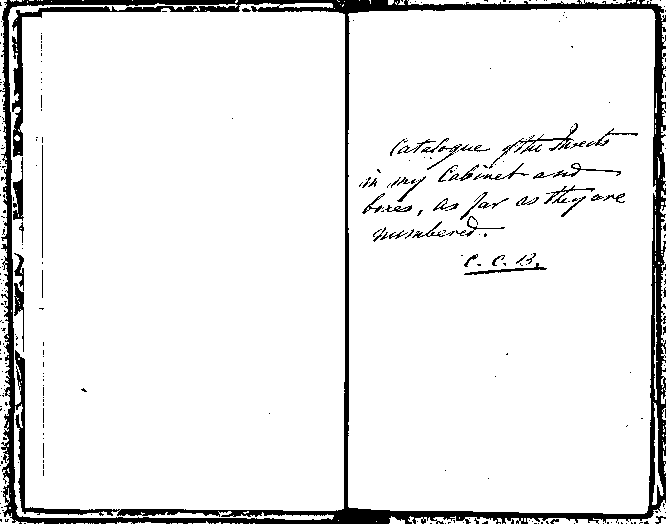 Catalogue of the Insects
in my Cabinet and
boxes, as far as they are
numbered.
C. C. B.